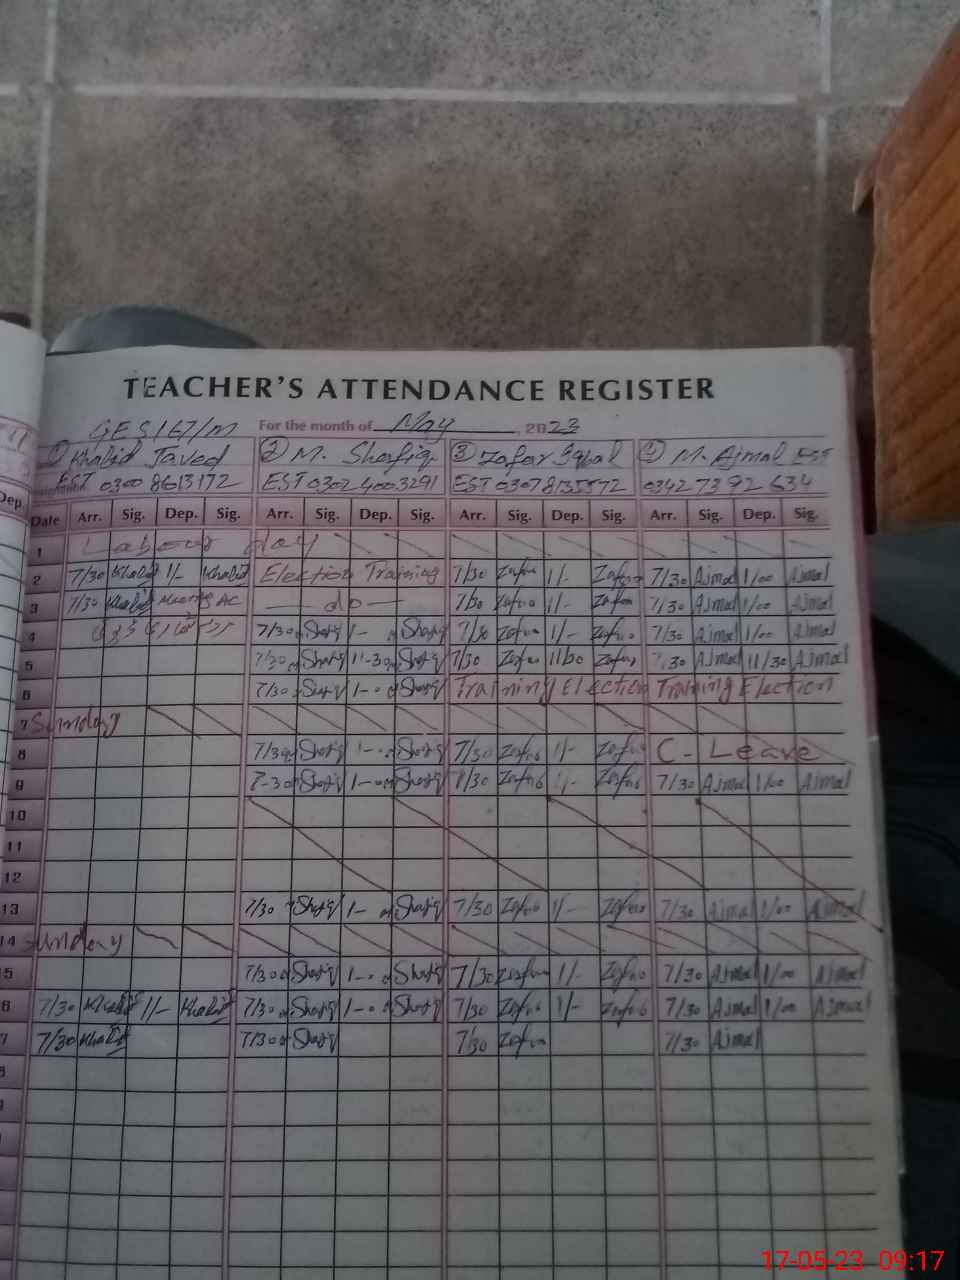 TEACHER'S ATTENDANCE REGISTER
For the month of May, 2023
① Khalid Javed ② M. Shafiq ③ Zafar Iqbal ④ M. Ajmal EST
EST 0300 8613172 EST 0302 4003291 EST 0307 8135572 0342 73 92 634
Dep. Date Arr. Sig. Dep. Sig. Arr. Sig. Dep. Sig. Arr. Sig. Dep. Sig. Arr. Sig. Dep. Sig.
1 Labour day
2 7/30 Khalid 1/- Khalid Election Training 7/30 Zafar 1/- Zafar 7/30 Ajmal 1/00 Ajmal
3 7/30 Khalid Meeting AC do 7/30 Zafar 1/- Zafar 7/30 Ajmal 1/00 Ajmal
4 7/30 Shafiq 1- Shafiq 7/30 Zafar 1/- Zafar 7/30 Ajmal 1/00 Ajmal
5 7/30 Shafiq 11-30 Shafiq 7/30 Zafar 11/30 Zafar 7/30 Ajmal 11/30 Ajmal
6 7/30 Shafiq 1- Shafiq Training Election Training Election
7 Sunday
8 7/30 Shafiq 1- Shafiq 7/30 Zafar 1/- Zafar C-Leave
9 7-30 Shafiq 1- Shafiq 7/30 Zafar 1/- Zafar 7/30 Ajmal 1/00 Ajmal
10
11
12
13 7/30 Shafiq 1- Shafiq 7/30 Zafar 1/- Zafar 7/30 Ajmal 1/00 Ajmal
14 Sunday
5 7/30 Shafiq 1- Shafiq 7/30 Zafar 1/- Zafar 7/30 Ajmal 1/00 Ajmal
6 7/30 Khalid 1/- Khalid 7/30 Shafiq 1- Shafiq 7/30 Zafar 1/- Zafar 7/30 Ajmal 1/00 Ajmal
7 7/30 Khalid 7/30 Shafiq 7/30 Zafar 7/30 Ajmal
17-05-23 09:17